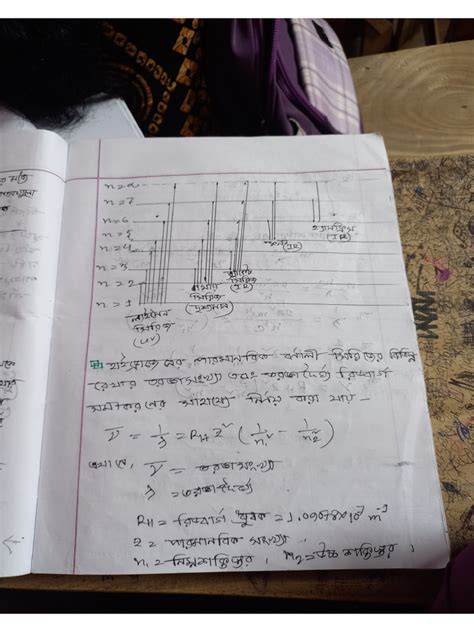 n = α
n = 7
n = 6
n = 5
n = 4
n = 3
n = 2
n = 1
লাইমেন
সিরিজ
(UV)
বামার
সিরিজ
(দৃশ্যমান)
সিরিজ
(IR)
(IR)
(IR)
হাইড্রোজেনের পারমানবিক বর্ণালী সিরিজের বিভিন্ন
রেখার তরঙ্গসংখ্যা এবং তরঙ্গদৈর্ঘ্য রিডবার্গ
সমীকরনের সাহায্যে নির্নয় করা যায় -
ν̄ = 1/λ = R_H Z² (1/n₁² - 1/n₂²)
এখানে, ν̄ = তরঙ্গসংখ্যা
λ = তরঙ্গদৈর্ঘ্য
R_H = রিডবার্গ ধ্রুবক = m⁻¹
Z = পারমানবিক সংখ্যা
n₁ = নিম্নশক্তিস্তর, n₂ = উচ্চ শক্তিস্তর।